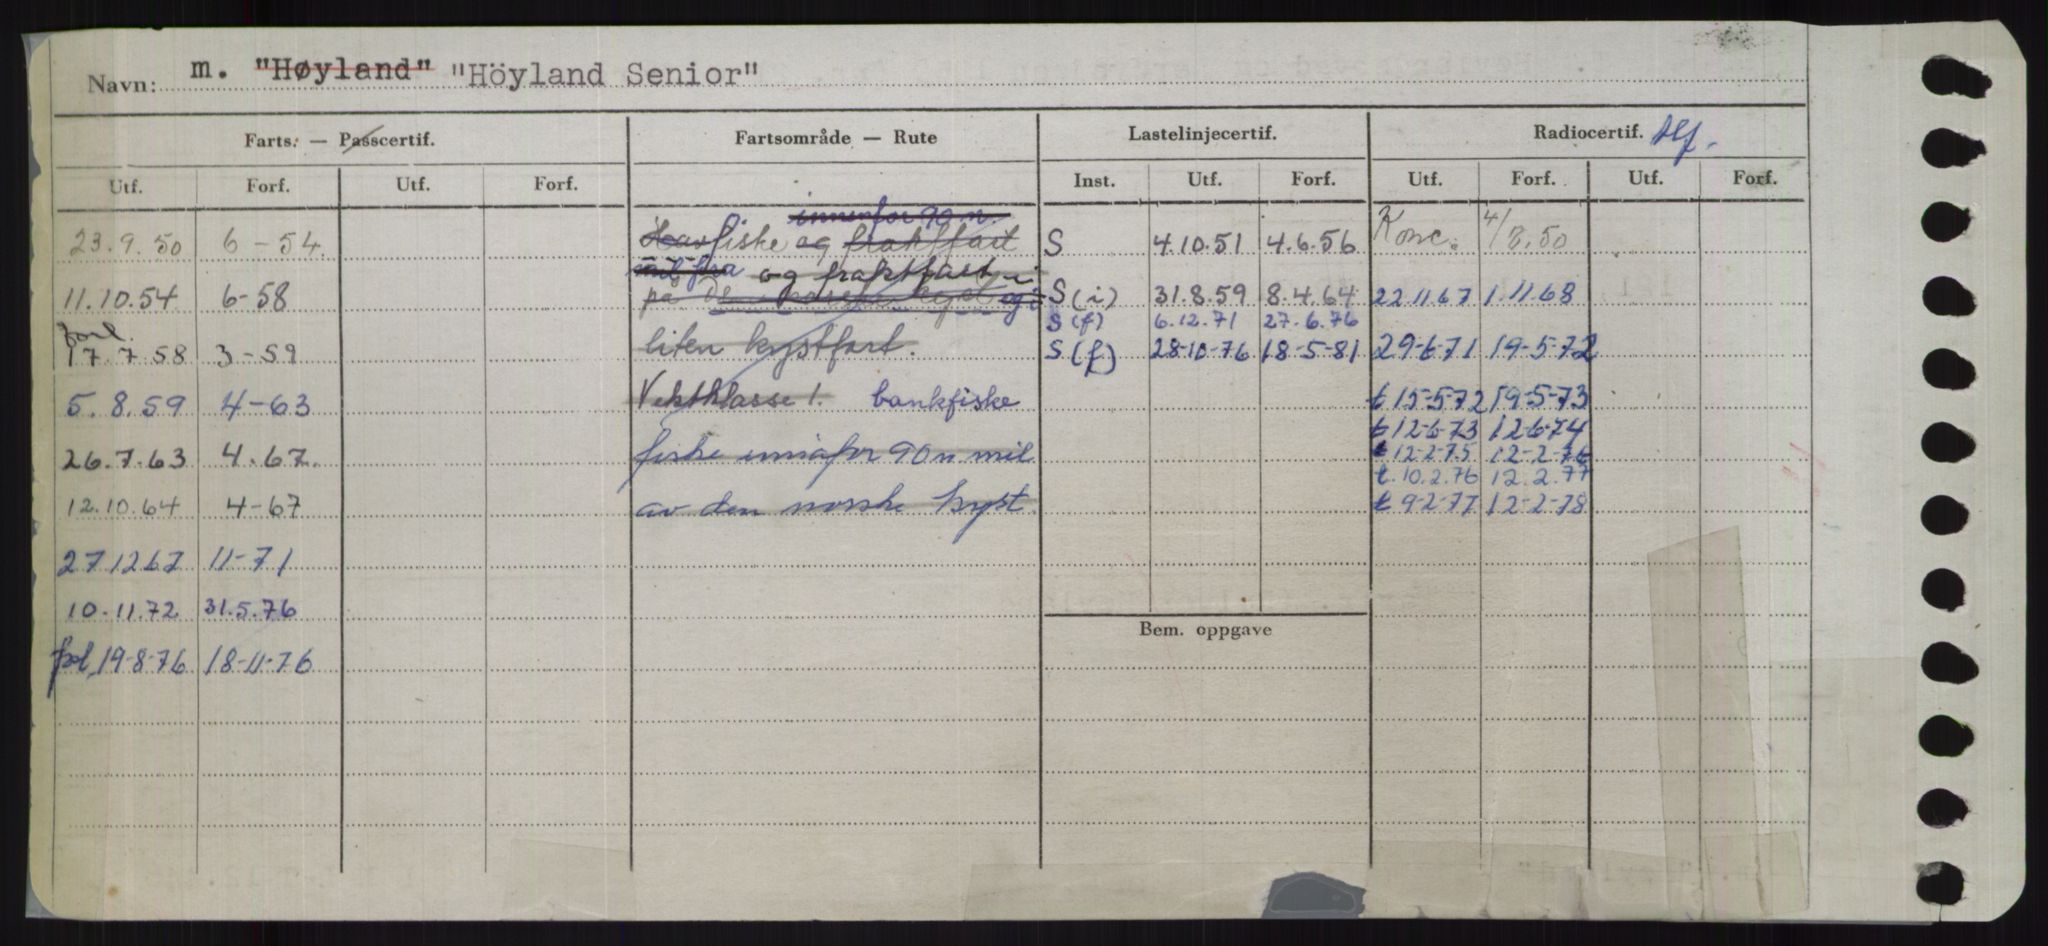 Navn: m. "Høyland" "Höyland Senior"
Farts. — Passcertif. Fartsområde — Rute Lastelinjecertif. Radiocertif. tlf.
Utf. Forf. Utf. Forf. Inst. Utf. Forf. Utf. Forf. Utf. Forf.
innenfor 90 n.
23.9.50 6-54. Havfiske og fraktfart S 4.10.51 4.6.56 Konc. 4/8.50
mil fra og fraktfart i
11.10.54 6-58 på den norske kyst og i S (i) 31.8.59 8.4.64 22 11 67 1.11 68
S (f) 6.12.71 27.6.76
forl.
17.7.58 3-59 liten kystfart. S (f) 28-10-76 18-5-81 29-6-71 19-5-72
5.8.59 4-63 Vektklasse 1. bankfiske t 15-5-72 19-5-73
t 12-6-73 12-6-74
26.7.63 4.67. fiske innafor 90 n mil t 12-2-75 12-2-76
t. 10.2.76 12.2.77
12.10.64 4-67 av den norske kyst t 9-2-77 12-2-78
27 12 67 11-71
10.11.72 31.5.76
Bem. oppgave
forl. 19-8-76 18-11-76